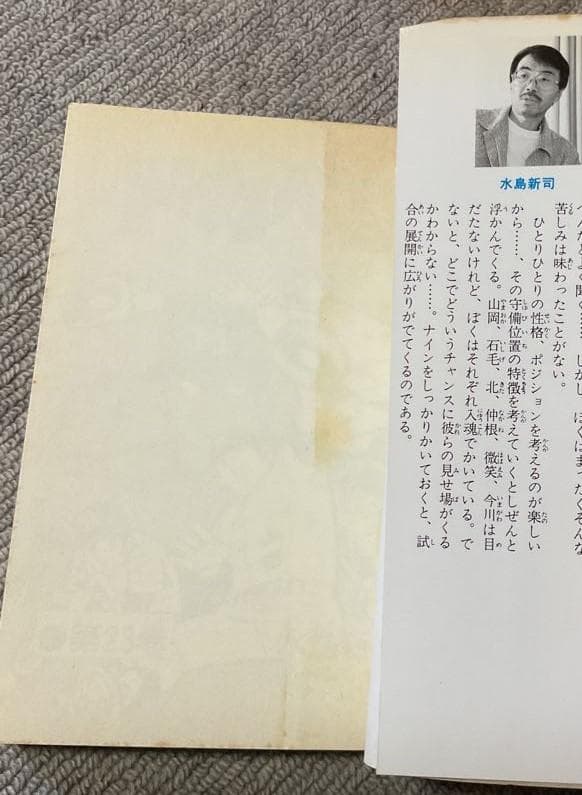 水島新司
苦しみは味わったことがない。
ひとりひとりの性格、ポジションを考えるのが楽しい
から……、その守備位置の特徴を考えていくとしぜんと
浮かんでくる。山岡、石毛、北、仲根、微笑、今川は目
だたないけれど、ぼくはそれぞれ入魂でかいている。で
ないと、どこでどういうチャンスに彼らの見せ場がくる
かわからない……。ナインをしっかりかいておくと、試
合の展開に広がりがでてくるのである。